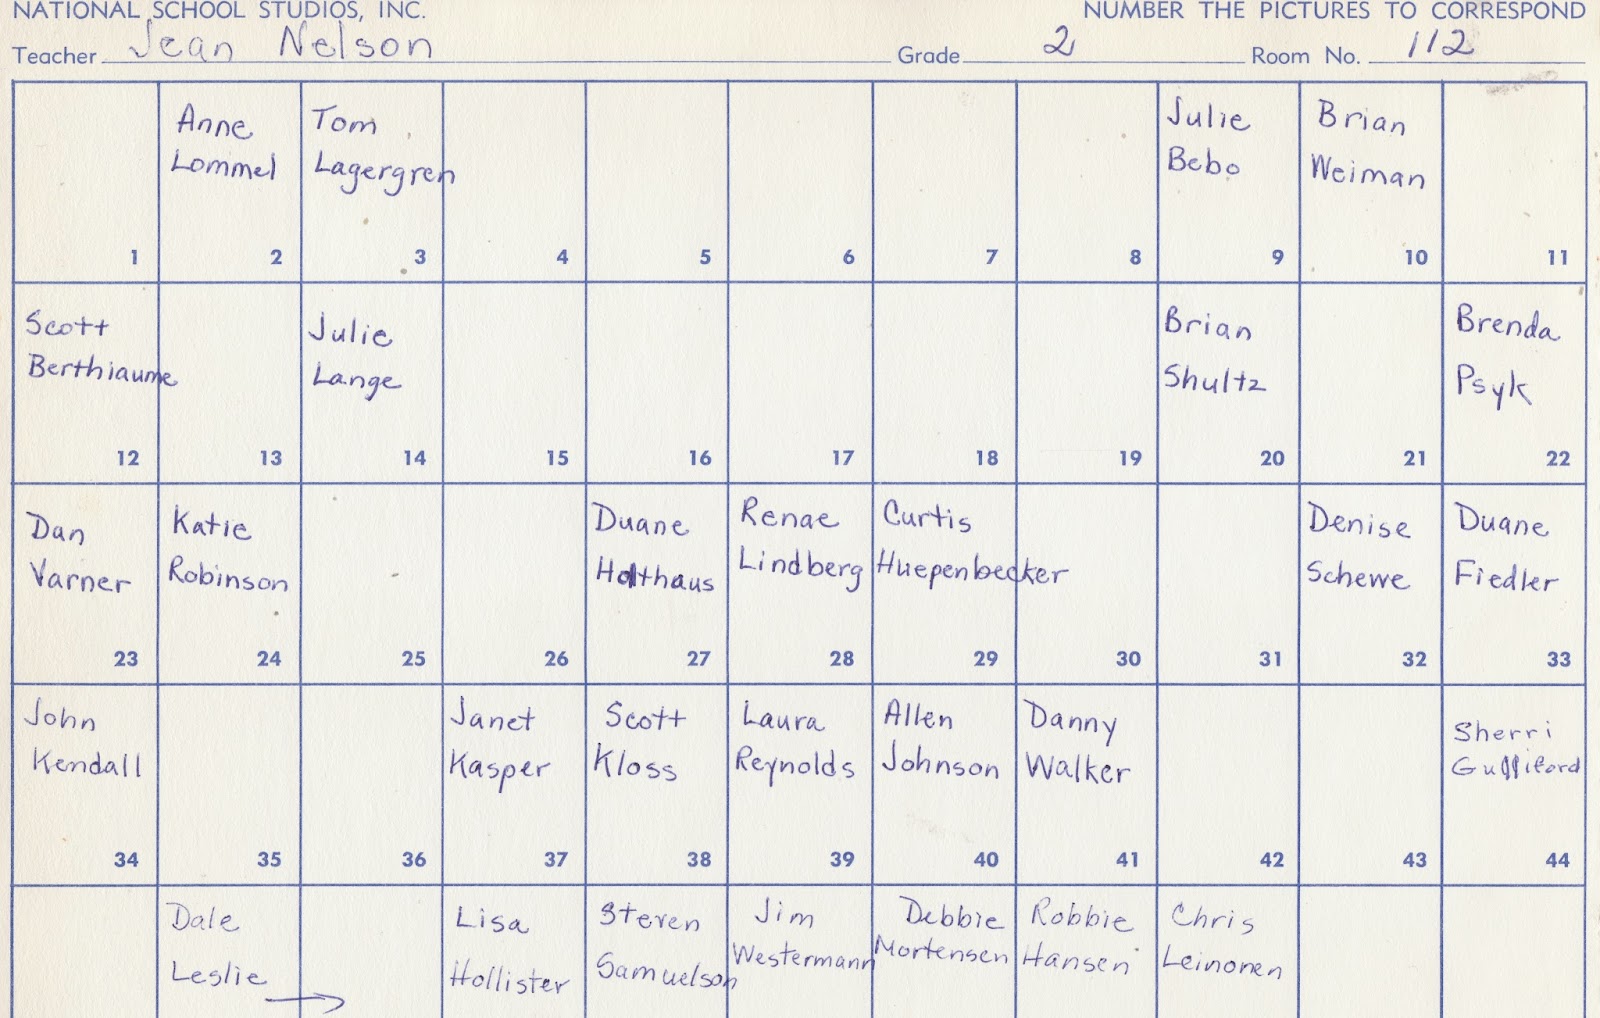 NATIONAL SCHOOL STUDIOS, INC. NUMBER THE PICTURES TO CORRESPOND
Teacher Jean Nelson Grade 2 Room No. 112
Anne Tom Julie Brian
Lommel Lagergren Bebo Weiman
1 2 3 4 5 6 7 8 9 10 11
Scott Julie Brian Brenda
Berthiaume Lange Shultz Psyk
12 13 14 15 16 17 18 19 20 21 22
Dan Katie Duane Renae Curtis Denise Duane
Varner Robinson Holthaus Lindberg Huepenbecker Schewe Fiedler
23 24 25 26 27 28 29 30 31 32 33
John Janet Scott Laura Allen Danny Sherri
Kendall Kasper Kloss Reynolds Johnson Walker
34 35 36 37 38 39 40 41 42 43 44
Dale Lisa Steven Jim Debbie Robbie Chris
Leslie Hollister Samuelson Westermann Mortensen Hansen Leinonen